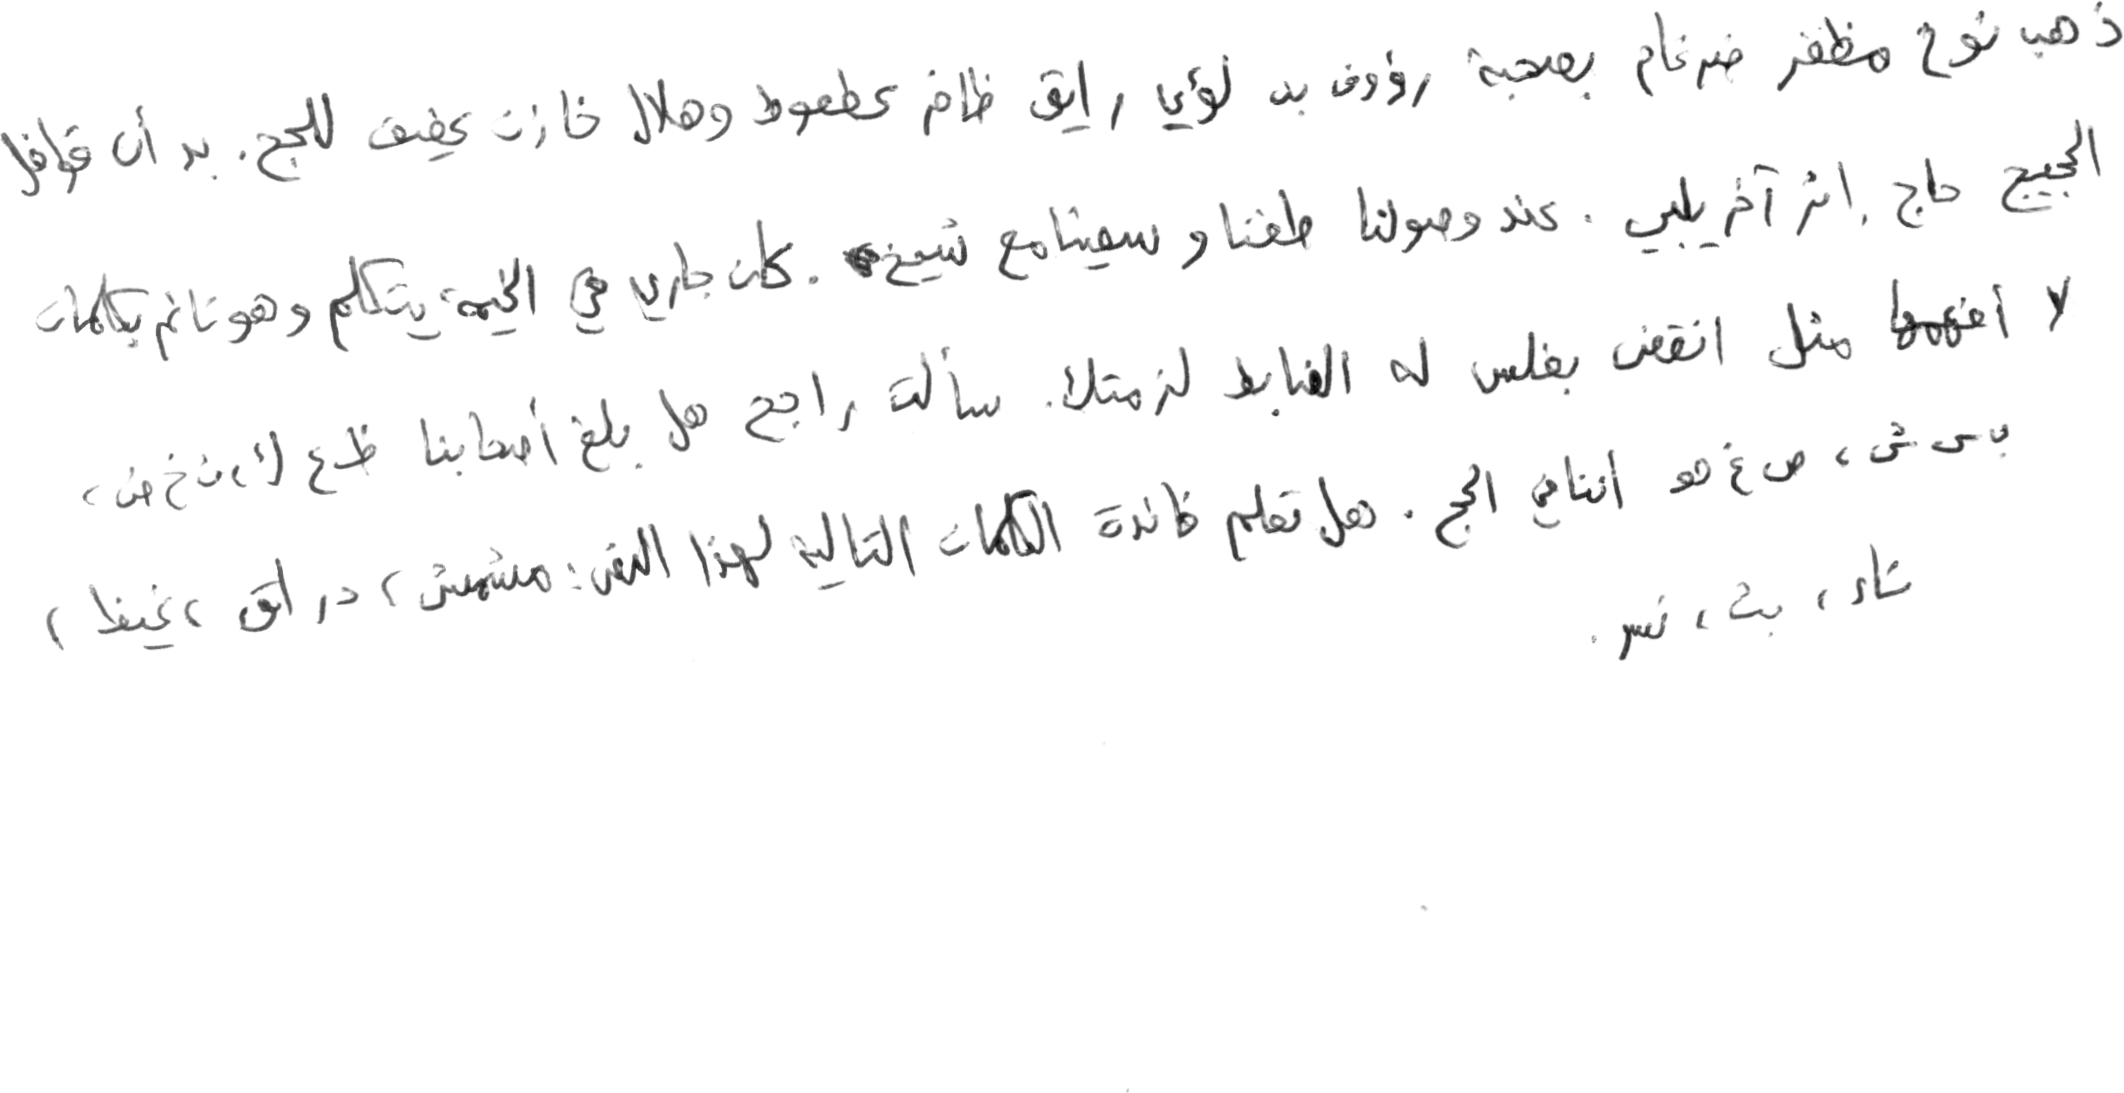 ذهب نوح مظفر ضرغام بصحبة رؤوف بن لؤي رايق ظافر عطعوط وهلال خازن عفيف للحج. بدأن قوافل
الحجيج حاج إثر آخر يلبي. عند وصولنا طفنا وسعينا مع شيخ. كان جاري في الخيمة يتكلم وهو نائم بكلمات
لا أفهمها مثل انقض بغلس له الضابط لزمتك. سألت راجح هل بلغ أصحابنا ظ ع ك، ن خ ض،
ب س ش، ص غ هو أثنا في الحج. هل تعلم فائدة الكلمات التالية لهذا النص: مشمش، در أق، غيظ،
شاء، بث، نسر.